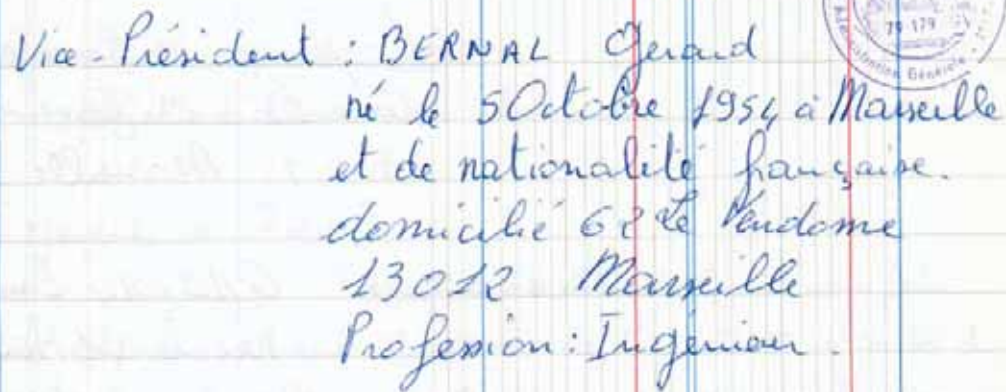 Vice-Président : BERNAL Gerard
né le 5 Octobre 1954 à Marseille
et de nationalité française.
domicilié 62 Le Vendome
13012 Marseille
Profession : Ingénieur.
79-179
Générale